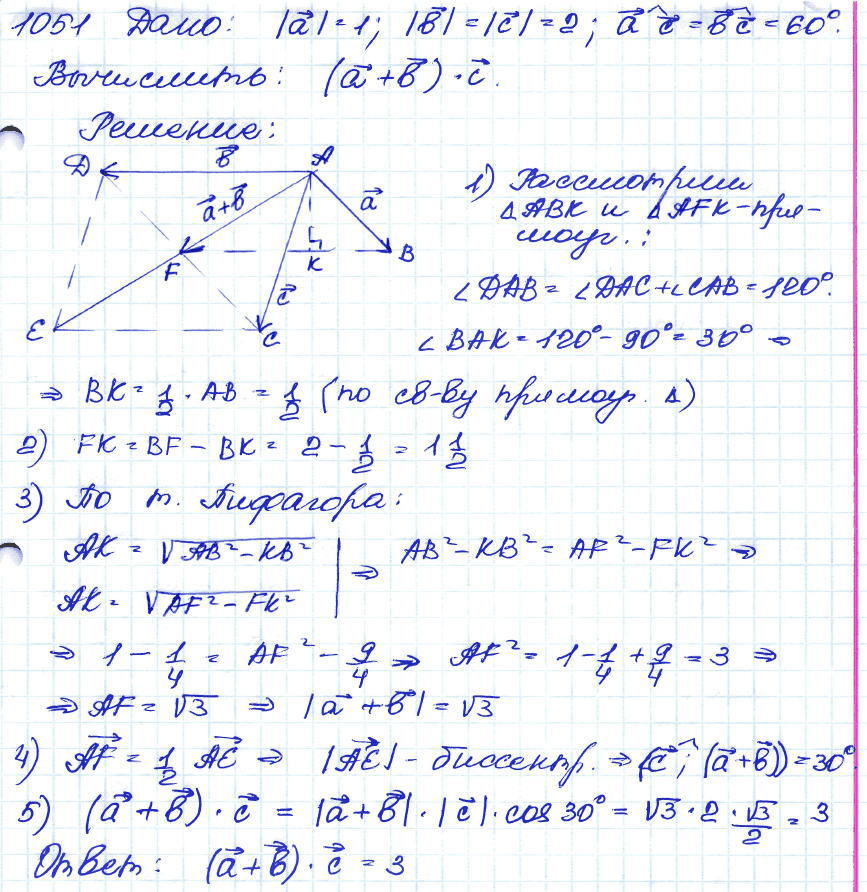 1051 Дано: |a⃗|=1; |b⃗|=|c⃗|=2; a⃗^c⃗=b⃗^c⃗=60°.
Вычислить: (a⃗+b⃗)·c⃗.
Решение:
D b⃗ A
a⃗+b⃗ a⃗
F K B
c⃗
E C
1) Рассмотрим
△ABK и △AFK-пря-
моуг.:
∠DAB=∠DAC+∠CAB=120°.
∠BAK=120°-90°=30° ⇒
⇒ BK=1/2·AB=1/2 (по св-ву прямоуг. △)
2) FK=BF-BK=2-1/2=1 1/2
3) По т. Пифагора:
AK=√(AB²-KB²) | ⇒ AB²-KB²=AF²-FK² ⇒
AK=√(AF²-FK²)
⇒ 1-1/4=AF²-9/4 ⇒ AF²=1-1/4+9/4=3 ⇒
⇒ AF=√3 ⇒ |a⃗+b⃗|=√3
4) AF⃗=1/2 AE⃗ ⇒ |AE⃗|-биссектр. ⇒ (c⃗^;(a⃗+b⃗))=30°.
5) (a⃗+b⃗)·c⃗=|a⃗+b⃗|·|c⃗|·cos 30°=√3·2·√3/2=3
Ответ: (a⃗+b⃗)·c⃗=3